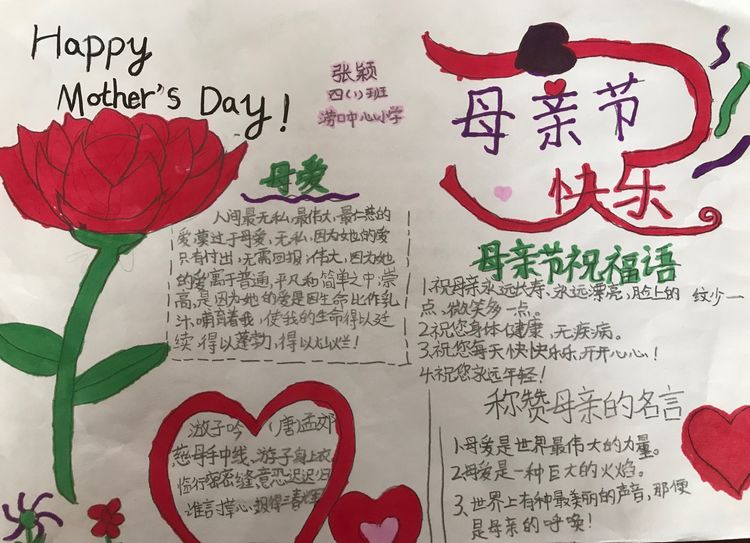 Happy
Mother's Day!
张颖
四(1)班
涝口中心小学
母亲节
快乐
母爱
人间最无私、最伟大、最仁慈的
爱莫过于母爱,无私,因为她的爱
只有付出,无需回报;伟大,因为她
的爱寓于普通、平凡和简单之中;崇
高,是因为她的爱是因生命比作乳
汁,哺育着我,使我的生命得以延
续,得以蓬勃,得以灿烂!
母亲节祝福语
1.祝母亲永远长寿、永远漂亮,脸上的 纹少一
点,微笑多一点。
2.祝您身体健康,无疾病。
3.祝您每天快快乐乐,开开心心!
4.祝您永远年轻!
称赞母亲的名言
1.母爱是世界最伟大的力量。
2.母爱是一种巨大的火焰。
3、世界上有种最美丽的声音,那便
是母亲的呼唤!
游子吟 (唐)孟郊
慈母手中线,游子身上衣
临行密密缝,意恐迟迟归
谁言 心,报得三春